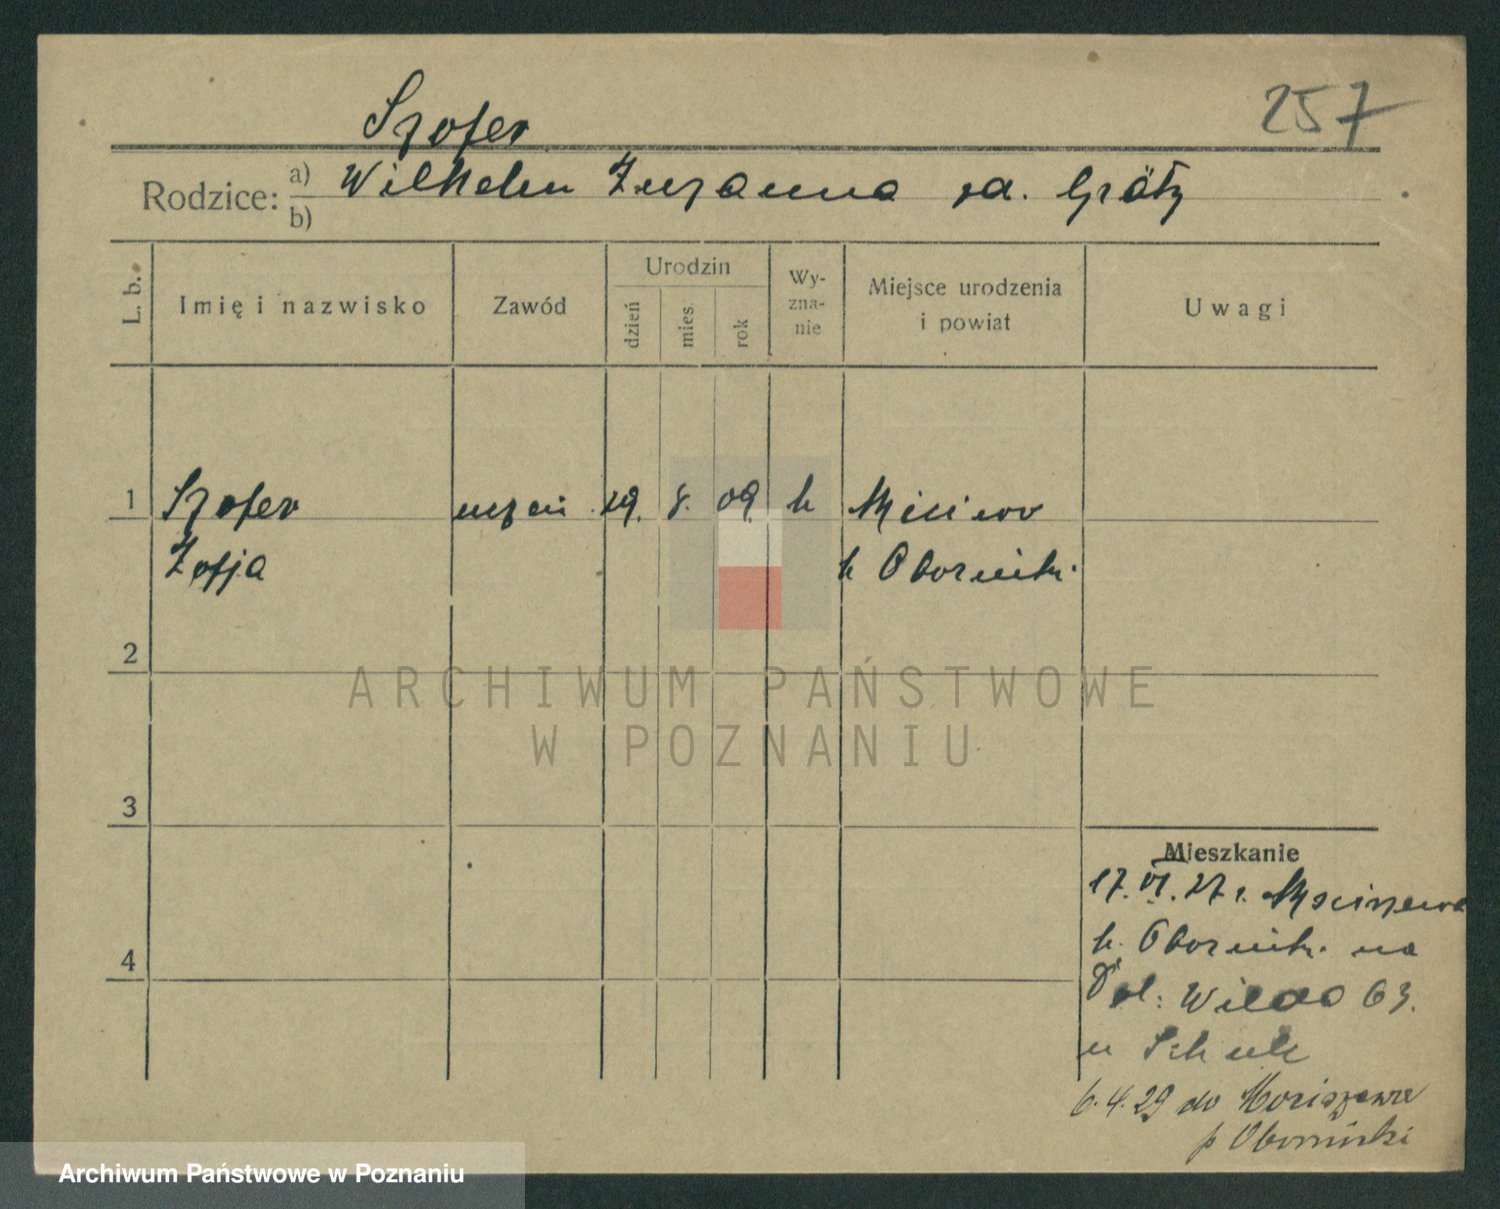 257
Szofer
Rodzice: a) Wilhelm Zuzanna zd. Grätz
b)
L. b. Imię i nazwisko Zawód Urodzin dzień mies. rok Wy-zna-nie Miejsce urodzenia i powiat Uwagi
1 Szofer uczeń 19. 8. 09. k
Zofja k Oborniki
2
3
4
Mieszkanie
17. VI. 27 r. Mściszewo
k. Oborniki na
Dol. Wilda 63.
u Schulz
6.4.29 do
p Obornicki
ARCHIWUM PAŃSTWOWE
W POZNANIU
Archiwum Państwowe w Poznaniu